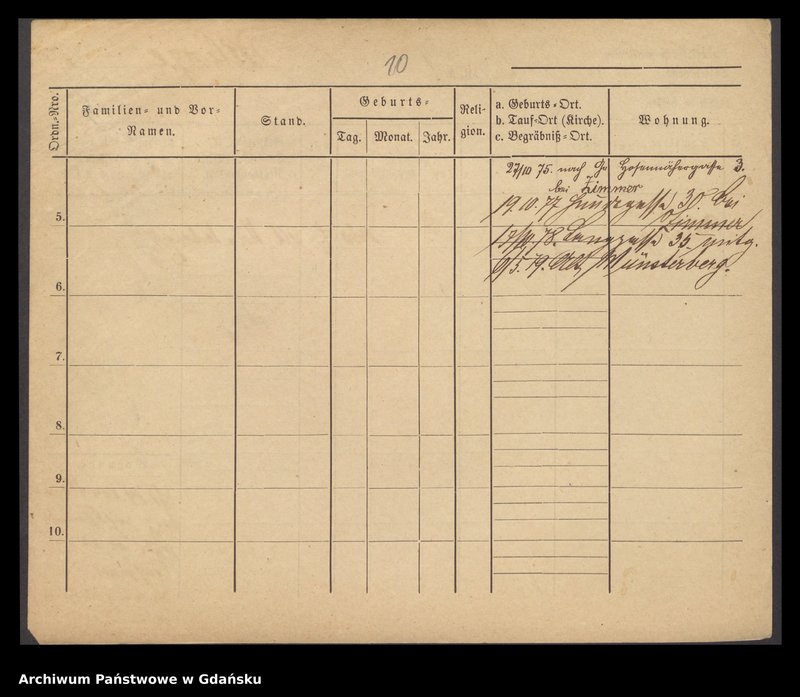 10
Ordn.-Nro.
Familien- und Vor-
Namen.
Stand.
Geburts-
Tag.
Monat.
Jahr.
Reli-
gion.
a. Geburts-Ort.
b. Tauf-Ort (Kirche).
c. Begräbniß-Ort.
Wohnung.
27/10 75. nach Hosennähergasse 3.
bei Zimmer
19.10.77 Hundegasse 30. bei
Zimmer
78. Langgasse 35
79. Münsterberg.
5.
6.
7.
8.
9.
10.
Archiwum Państwowe w Gdańsku